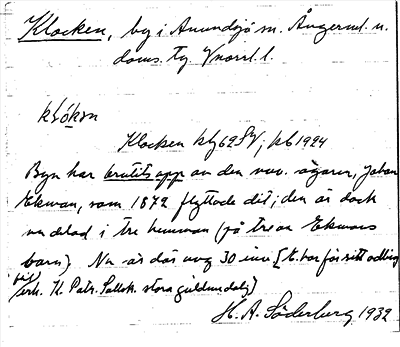 Klocken, by i Anundsjö sn. Ångerml. n.
doms. tg. Vnorrl. l.
Klocken klg 62 SV; jkb 1924
Byn har brutits upp av den nuv. ägaren, Johan
Ekman, som 1872 flyttade dit; den är dock
nu delad i tre hemman (på trenne Ekmans
barn). Nu är där nog 30 inv [E. har för sitt odling
H. A. Söderberg 1932